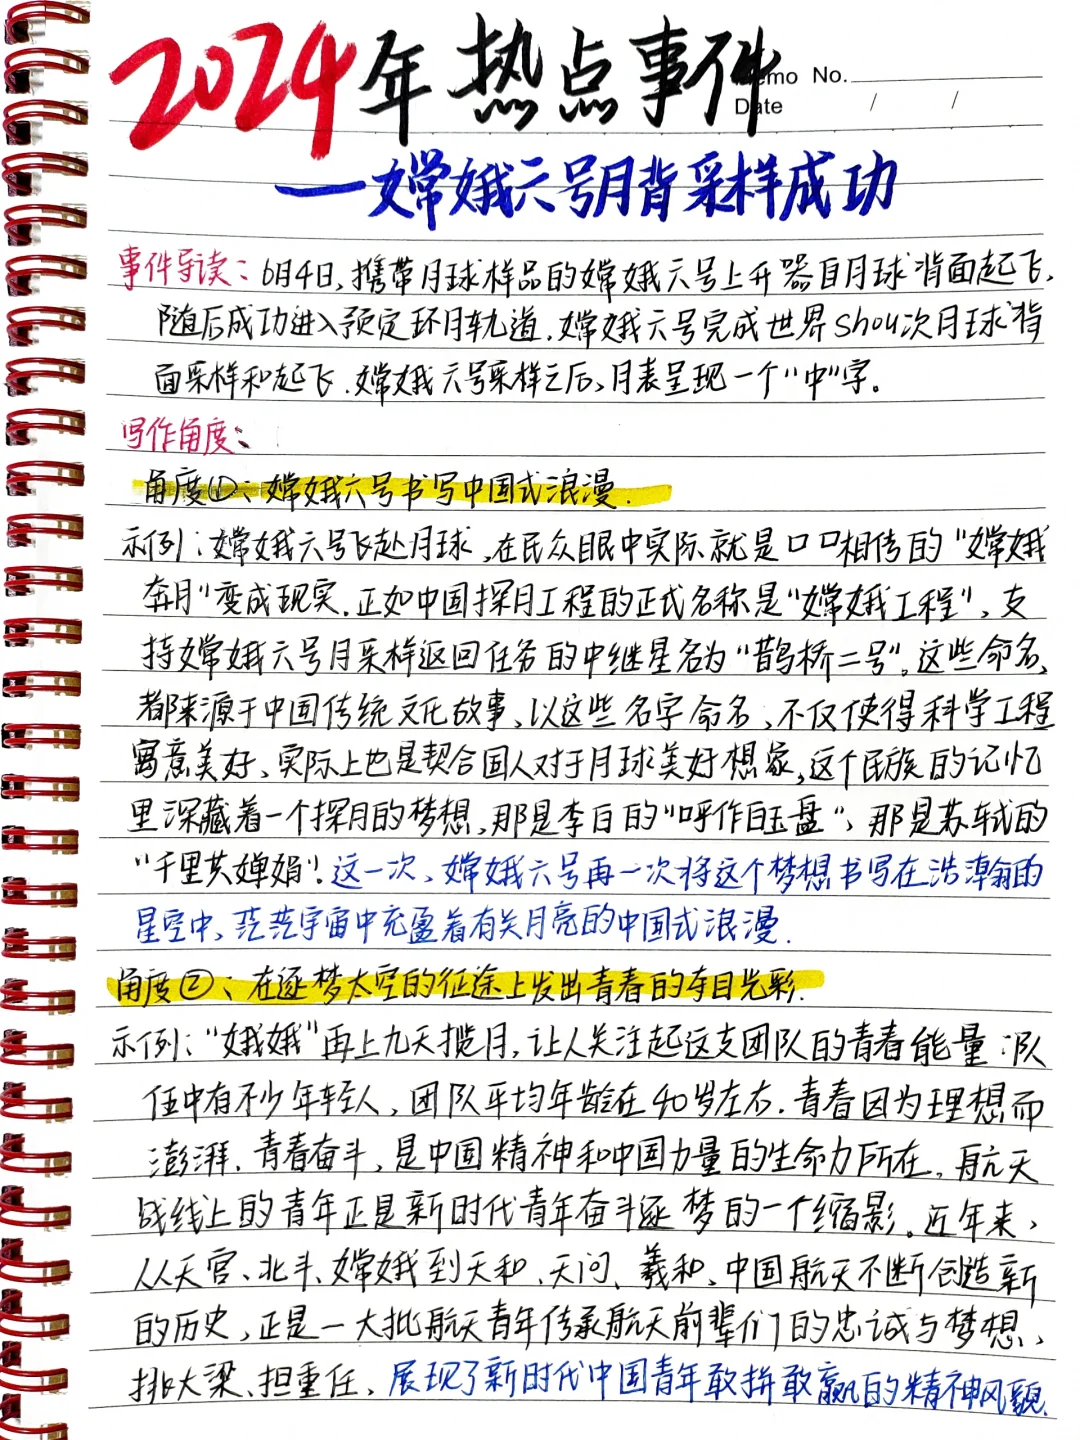 2024年热点事件
Memo No.
Date / /
—嫦娥六号月背采样成功
事件导读：6月4日,携带月球样品的嫦娥六号上升器自月球背面起飞,
随后成功进入预定环月轨道.嫦娥六号完成世界shou次月球背
面采样和起飞.嫦娥六号采样之后、月表呈现一个"中"字。
写作角度：
角度①、嫦娥六号书写中国式浪漫.
示例：嫦娥六号飞赴月球,在民众眼中实际就是口口相传的"嫦娥
奔月"变成现实.正如中国探月工程的正式名称是"嫦娥工程"，支
持嫦娥六号月采样返回任务的中继星名为"鹊桥二号"。这些命名、
都来源于中国传统文化故事、以这些名字命名、不仅使得科学工程
寓意美好、实际上也是契合国人对于月球美好想象,这个民族的记忆
里深藏着一个探月的梦想,那是李白的"呼作白玉盘"、那是苏轼的
"千里共婵娟"！这一次、嫦娥六号再一次将这个梦想书写在浩瀚的
星空中,茫茫宇宙中充盈着有关月亮的中国式浪漫.
角度②、在逐梦太空的征途上发出青春的夺目光彩.
示例："娥娥"再上九天揽月,让人关注起这支团队的青春能量：队
伍中有不少年轻人,团队平均年龄在40岁左右.青春因为理想而
澎湃、青春奋斗,是中国精神和中国力量的生命力所在,航天
战线上的青年正是新时代青年奋斗逐梦的一个缩影。近年来、
从天宫、北斗、嫦娥到天和、天问、羲和、中国航天不断创造新
的历史,正是一大批航天青年传承航天前辈们的忠诚与梦想、
挑大梁、担重任、展现了新时代中国青年敢拼敢赢的精神风貌.